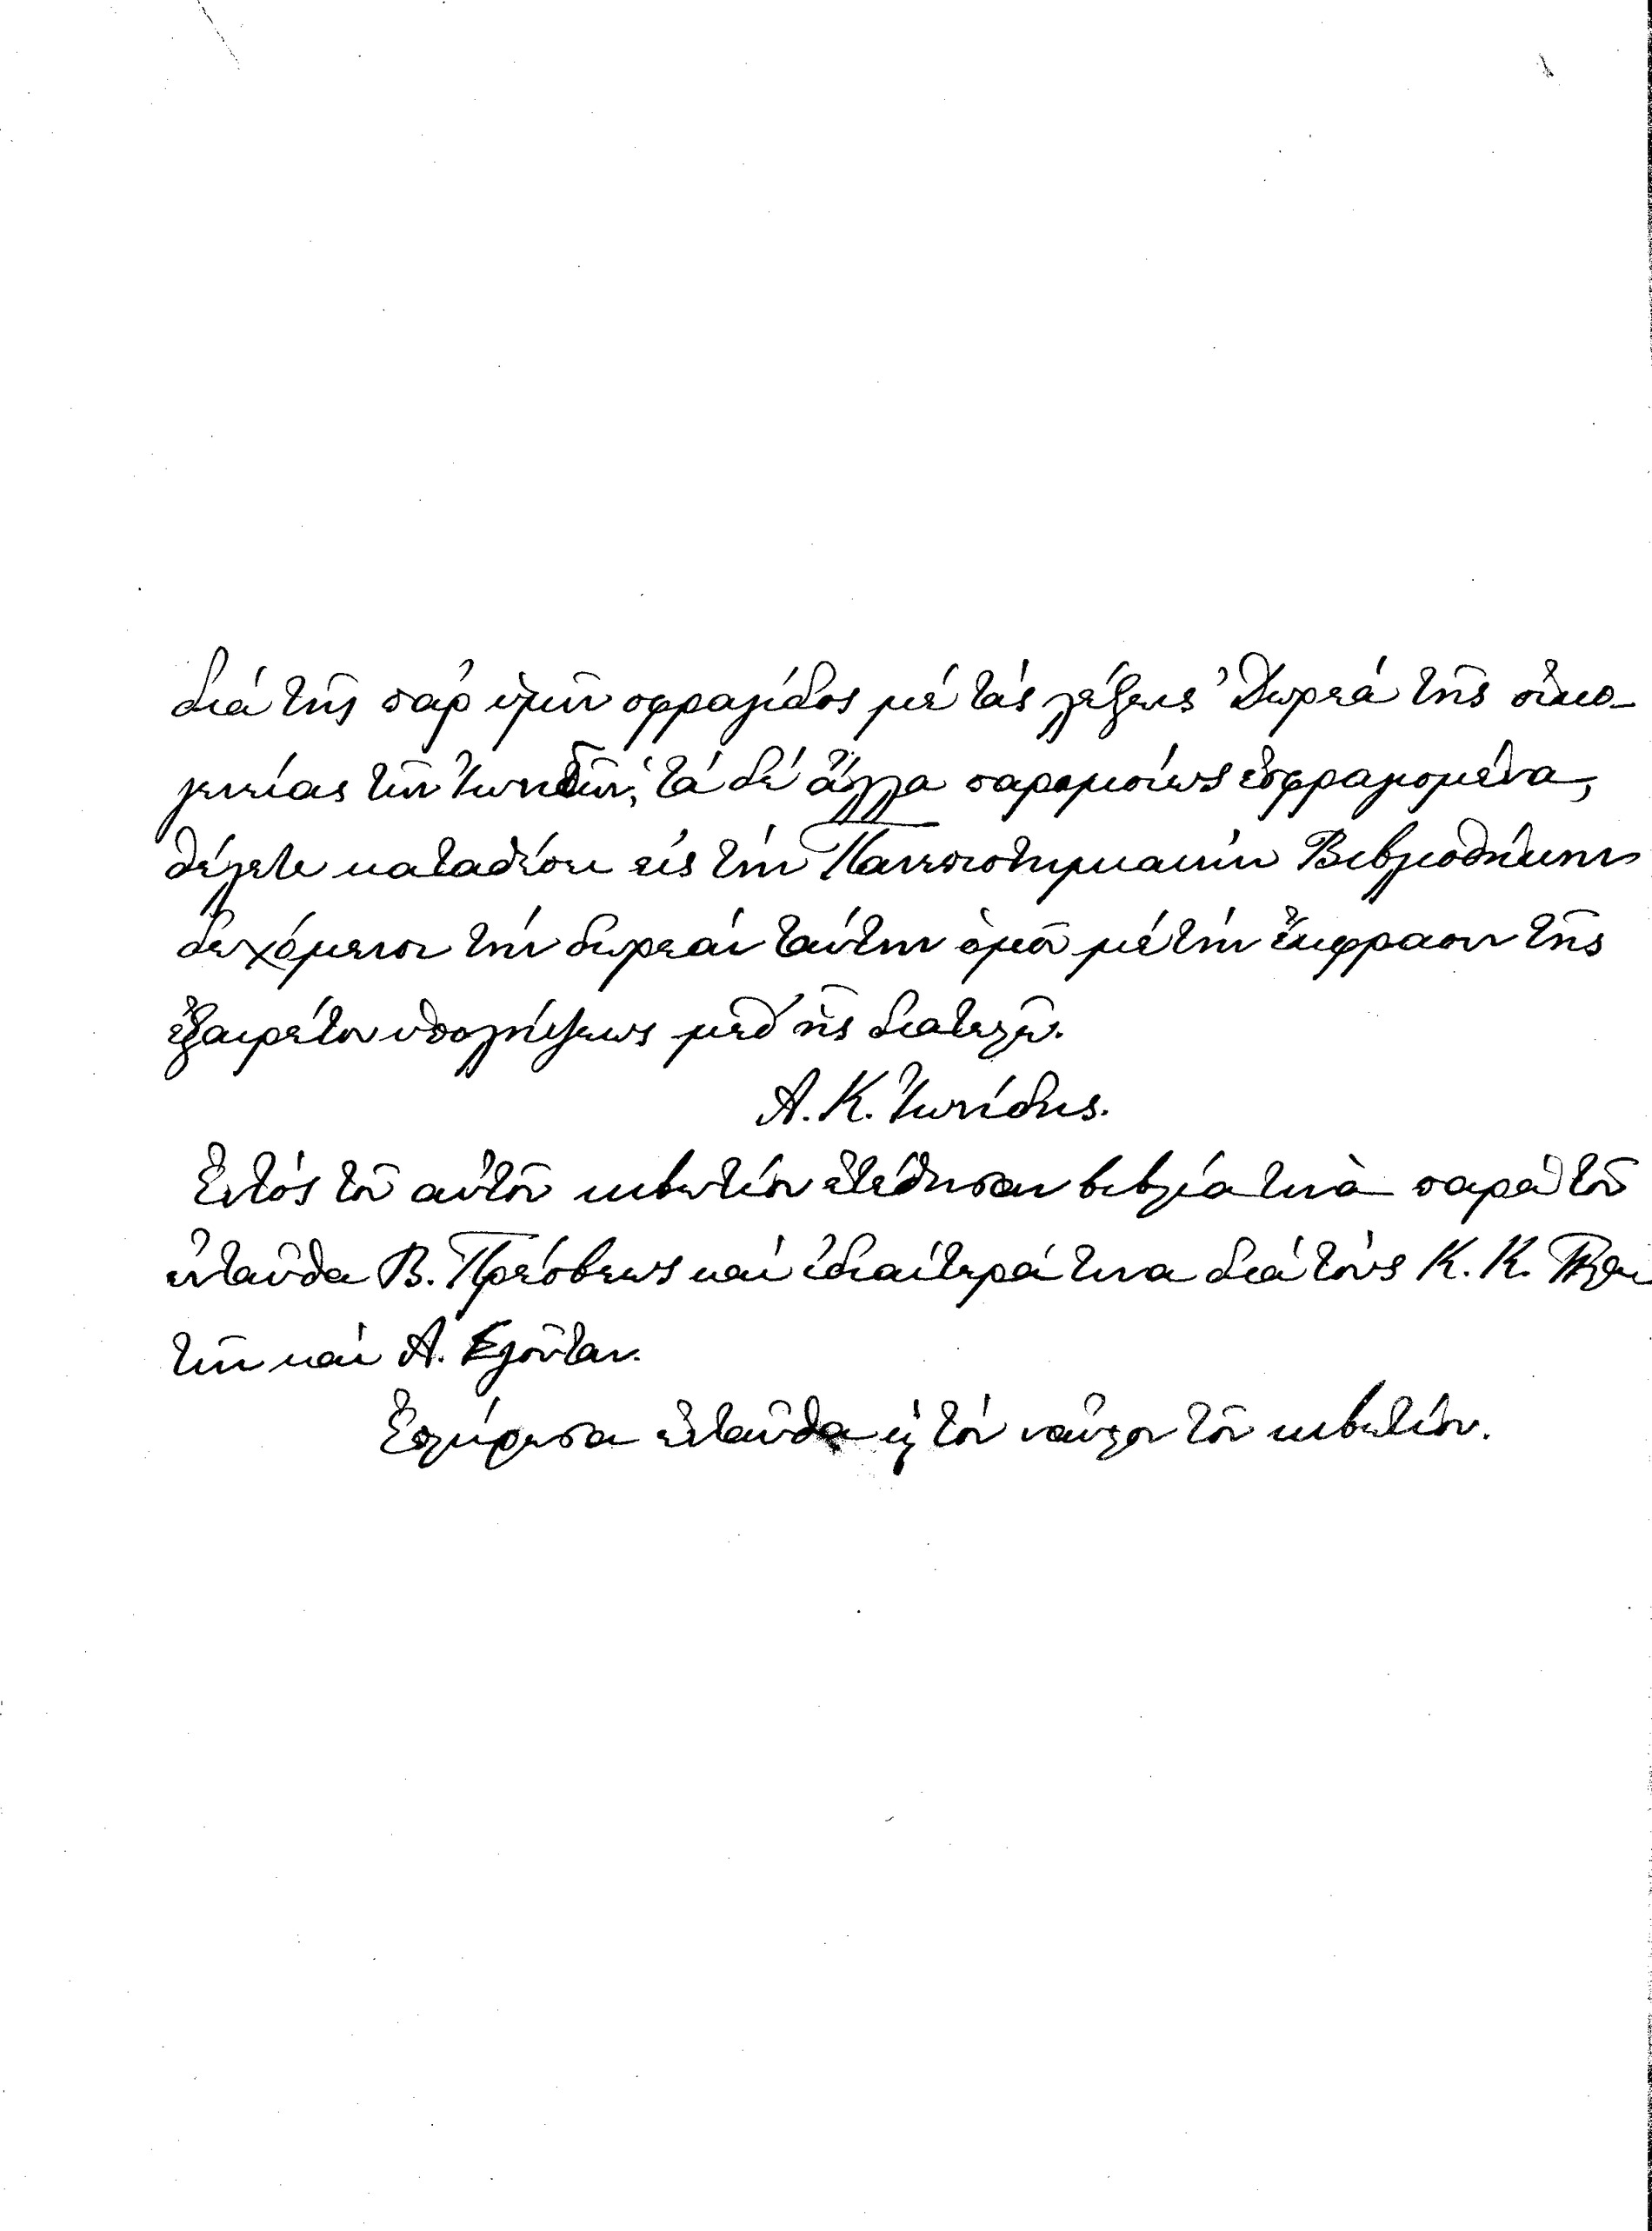 διά τῆς παρ' ὑμῖν σφραγίδος μέ τάς λέξεις "Δωρεά τῆς οἰκο-
γενείας τῶν Ἰωνιδῶν", τά δέ ἄλλα παρομοίως ἐσφραγισμένα,
θέλετε καταθέσει εἰς τήν Πανεπιστημιακήν Βιβλιοθήκην
δεχόμενοι τήν δωρεάν ταύτην ὁμοῦ μέ τήν ἔκφρασιν τῆς
ἐξαιρέτου ὑπολήψεως μεθ' ἧς διατελῶ.
Α. Κ. Ἰωνίδης.
Ἐντός τοῦ αὐτοῦ κιβωτίου ἐτέθησαν βιβλία τινὰ παρά τοῦ
ἐνταῦθα Β. Πρέσβεως καί ἰδιαίτερά τινα διά τούς Κ. Κ.
την καί Α.
Ἐπλήρωσα ἐνταῦθα κ τόν ναῦλον τοῦ κιβωτίου.